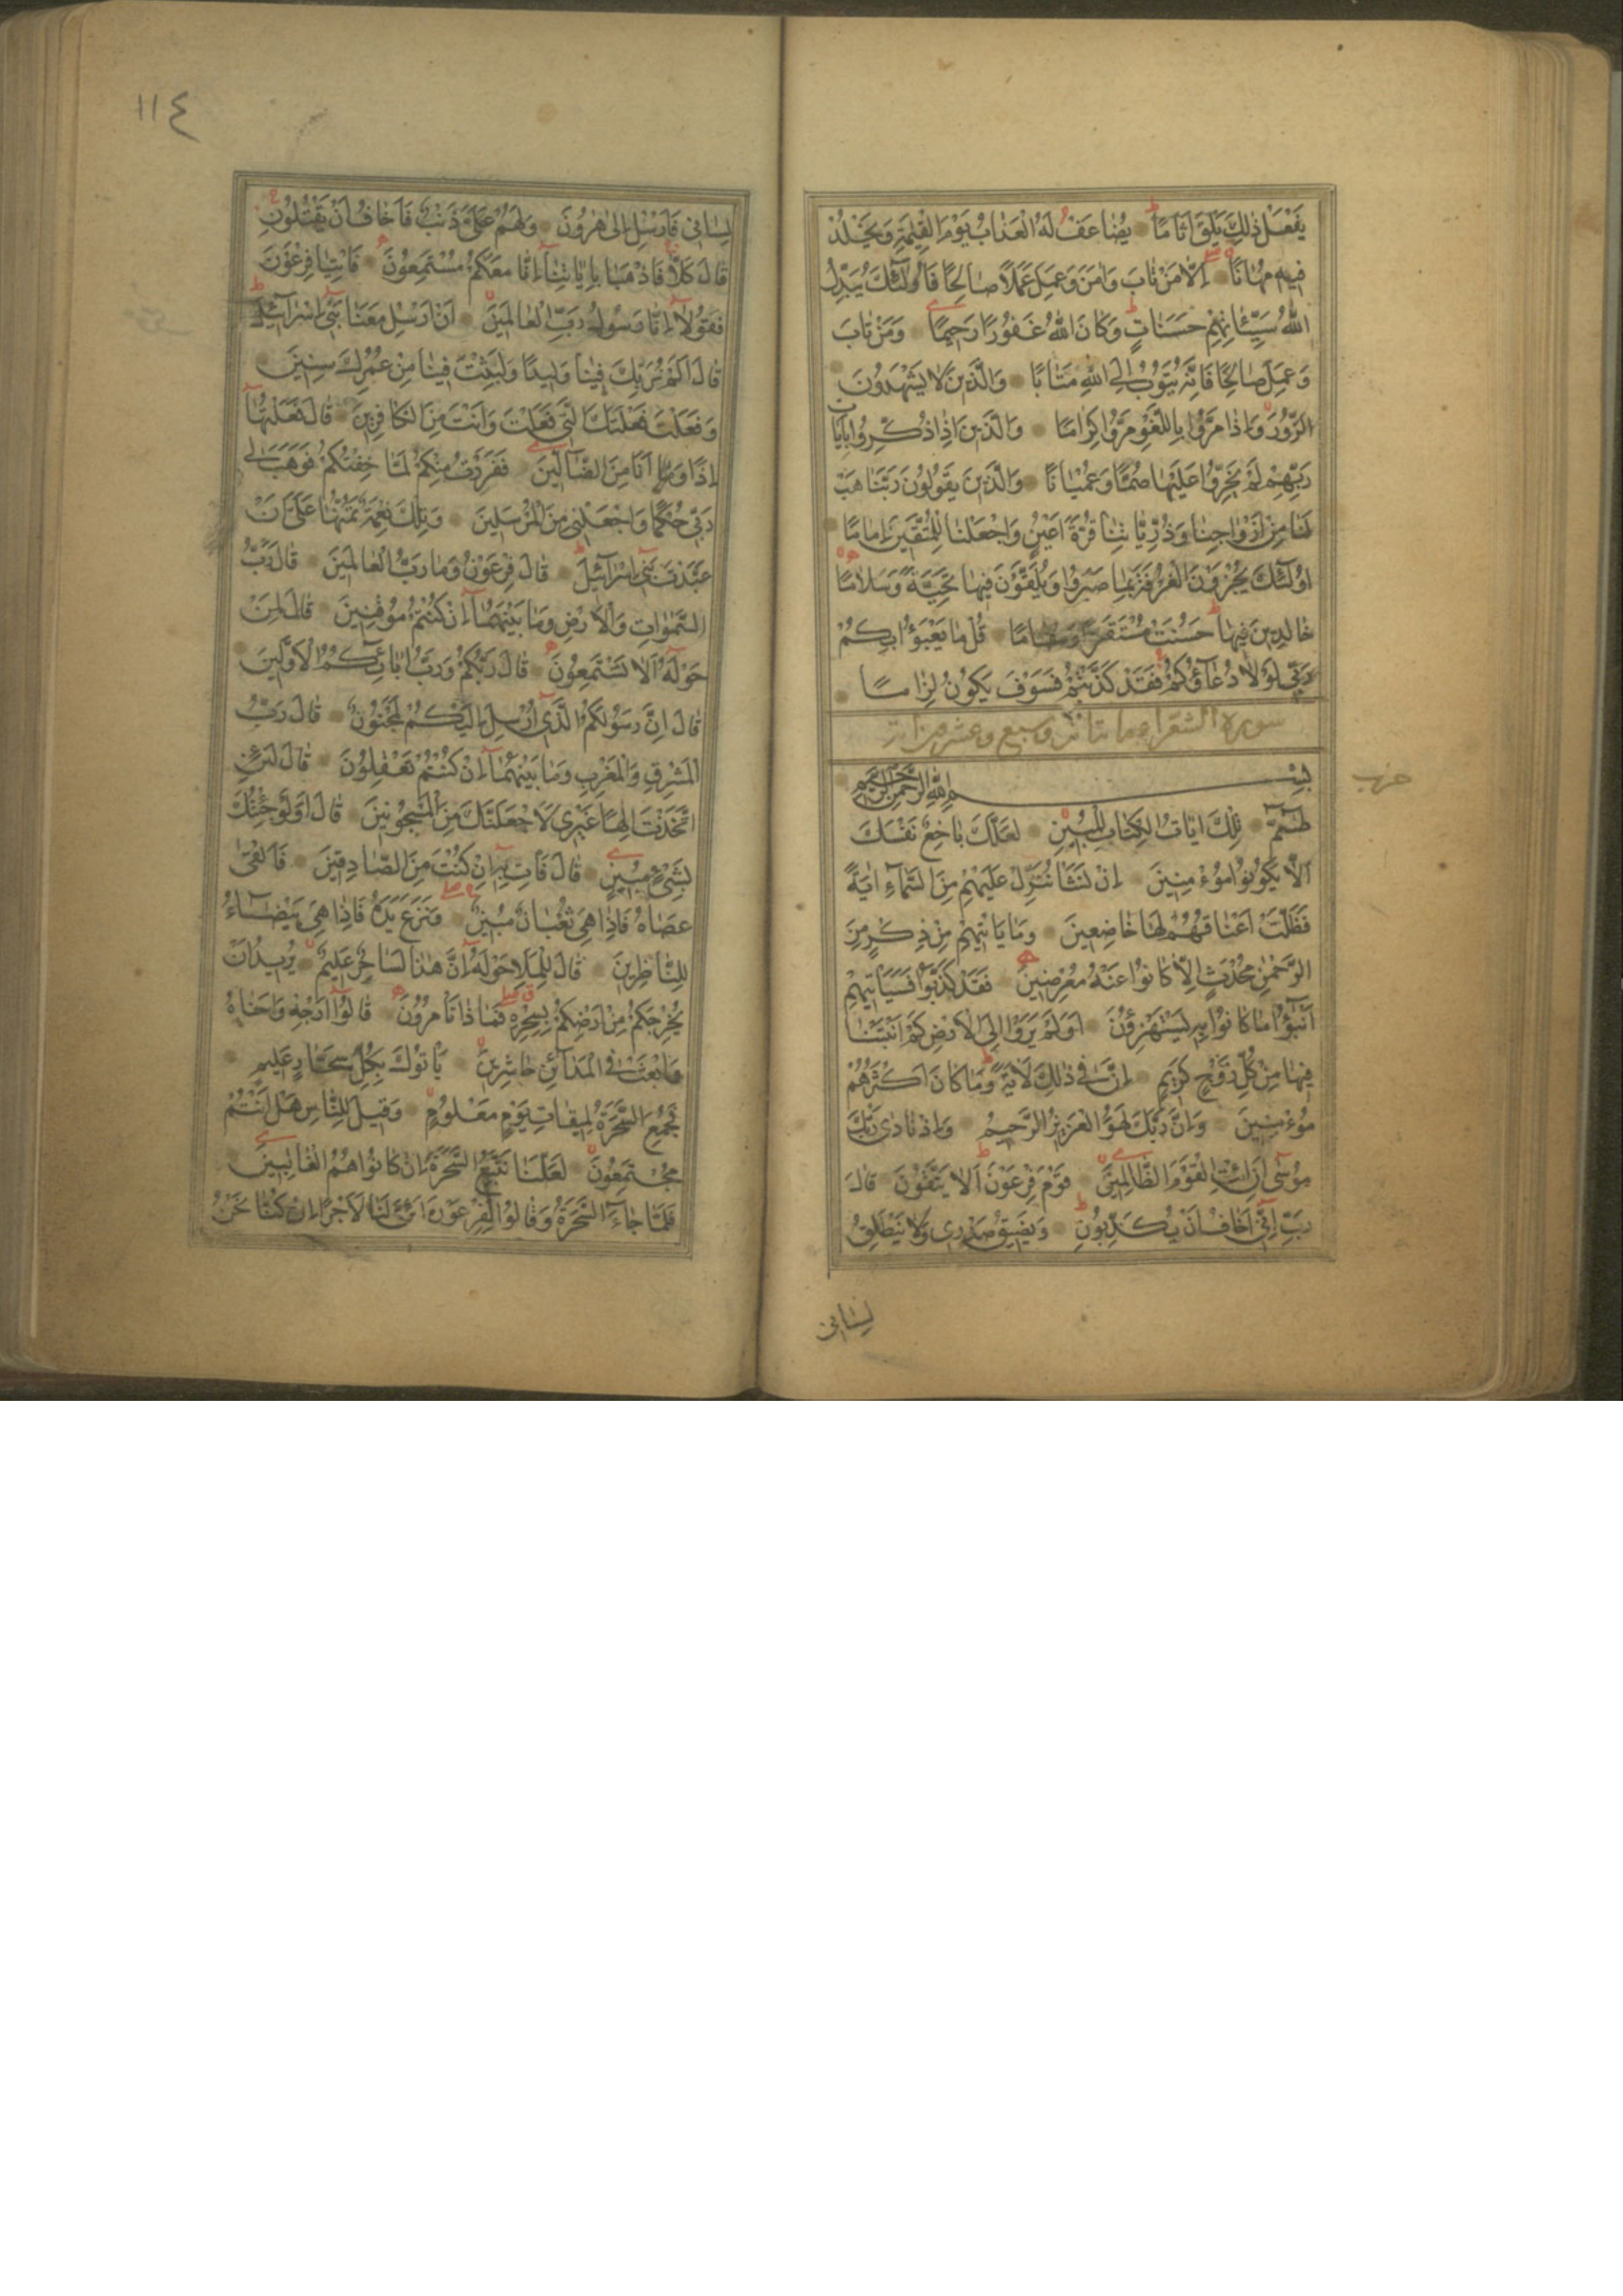 يَفْعَلْ ذٰلِكَ يَلْقَ اَثَامًا يُضَاعَفْ لَهُ الْعَذَابُ يَوْمَ الْقِيٰمَةِ وَيَخْلُدْ
فِيهِ مُهَانًا اِلَّا مَنْ تَابَ وَاٰمَنَ وَعَمِلَ عَمَلًا صَالِحًا فَاُولٰٓئِكَ يُبَدِّلُ
اللّٰهُ سَيِّئَاتِهِمْ حَسَنَاتٍ وَكَانَ اللّٰهُ غَفُورًا رَحِيمًا وَمَنْ تَابَ
وَعَمِلَ صَالِحًا فَاِنَّهُ يَتُوبُ اِلَى اللّٰهِ مَتَابًا وَالَّذِينَ لَا يَشْهَدُونَ
الزُّورَ وَاِذَا مَرُّوا بِاللَّغْوِ مَرُّوا كِرَامًا وَالَّذِينَ اِذَا ذُكِّرُوا بِاٰيَاتِ
رَبِّهِمْ لَمْ يَخِرُّوا عَلَيْهَا صُمًّا وَعُمْيَانًا وَالَّذِينَ يَقُولُونَ رَبَّنَا هَبْ
لَنَا مِنْ اَزْوَاجِنَا وَذُرِّيَّاتِنَا قُرَّةَ اَعْيُنٍ وَاجْعَلْنَا لِلْمُتَّقِينَ اِمَامًا
اُولٰٓئِكَ يُجْزَوْنَ الْغُرْفَةَ بِمَا صَبَرُوا وَيُلَقَّوْنَ فِيهَا تَحِيَّةً وَسَلَامًا
خَالِدِينَ فِيهَا حَسُنَتْ مُسْتَقَرًّا وَمُقَامًا قُلْ مَا يَعْبَؤُا بِكُمْ
رَبِّي لَوْلَا دُعَاؤُكُمْ فَقَدْ كَذَّبْتُمْ فَسَوْفَ يَكُونُ لِزَامًا
سورة الشعراء مائتان وسبع وعشرون اية
بِسْمِ اللّٰهِ الرَّحْمٰنِ الرَّحِيمِ
حزب
طٰسٓمٓ تِلْكَ اٰيَاتُ الْكِتَابِ الْمُبِينِ لَعَلَّكَ بَاخِعٌ نَفْسَكَ
اَلَّا يَكُونُوا مُؤْمِنِينَ اِنْ نَشَأْ نُنَزِّلْ عَلَيْهِمْ مِنَ السَّمَاءِ اٰيَةً
فَظَلَّتْ اَعْنَاقُهُمْ لَهَا خَاضِعِينَ وَمَا يَأْتِيهِمْ مِنْ ذِكْرٍ مِنَ
الرَّحْمٰنِ مُحْدَثٍ اِلَّا كَانُوا عَنْهُ مُعْرِضِينَ فَقَدْ كَذَّبُوا فَسَيَأْتِيهِمْ
اَنْبٰٓؤُا مَا كَانُوا بِهِ يَسْتَهْزِؤُنَ اَوَلَمْ يَرَوْا اِلَى الْاَرْضِ كَمْ اَنْبَتْنَا
فِيهَا مِنْ كُلِّ زَوْجٍ كَرِيمٍ اِنَّ فِي ذٰلِكَ لَاٰيَةً وَمَا كَانَ اَكْثَرُهُمْ
مُؤْمِنِينَ وَاِنَّ رَبَّكَ لَهُوَ الْعَزِيزُ الرَّحِيمُ وَاِذْ نَادٰى رَبُّكَ
مُوسٰى اَنِ ائْتِ الْقَوْمَ الظَّالِمِينَ قَوْمَ فِرْعَوْنَ اَلَا يَتَّقُونَ قَالَ
رَبِّ اِنِّي اَخَافُ اَنْ يُكَذِّبُونِ وَيَضِيقُ صَدْرِي وَلَا يَنْطَلِقُ
لِسَانِي
١١٤
لِسَانِي فَاَرْسِلْ اِلٰى هٰرُونَ وَلَهُمْ عَلَيَّ ذَنْبٌ فَاَخَافُ اَنْ يَقْتُلُونِ
قَالَ كَلَّا فَاذْهَبَا بِاٰيَاتِنَا اِنَّا مَعَكُمْ مُسْتَمِعُونَ فَاْتِيَا فِرْعَوْنَ
فَقُولَا اِنَّا رَسُولُ رَبِّ الْعَالَمِينَ اَنْ اَرْسِلْ مَعَنَا بَنِي اِسْرَائِيلَ
قَالَ اَلَمْ نُرَبِّكَ فِينَا وَلِيدًا وَلَبِثْتَ فِينَا مِنْ عُمُرِكَ سِنِينَ
وَفَعَلْتَ فَعْلَتَكَ الَّتِي فَعَلْتَ وَاَنْتَ مِنَ الْكَافِرِينَ قَالَ فَعَلْتُهَا
اِذًا وَاَنَا مِنَ الضَّالِّينَ فَفَرَرْتُ مِنْكُمْ لَمَّا خِفْتُكُمْ فَوَهَبَ لِي
رَبِّي حُكْمًا وَاجْعَلَنِي مِنَ الْمُرْسَلِينَ وَتِلْكَ نِعْمَةٌ تَمُنُّهَا عَلَيَّ اَنْ
عَبَّدْتَ بَنِي اِسْرَائِيلَ قَالَ فِرْعَوْنُ وَمَا رَبُّ الْعَالَمِينَ قَالَ رَبُّ
السَّمٰوَاتِ وَالْاَرْضِ وَمَا بَيْنَهُمَا اِنْ كُنْتُمْ مُوقِنِينَ قَالَ لِمَنْ
حَوْلَهُ اَلَا تَسْتَمِعُونَ قَالَ رَبُّكُمْ وَرَبُّ اٰبَائِكُمُ الْاَوَّلِينَ
قَالَ اِنَّ رَسُولَكُمُ الَّذِي اُرْسِلَ اِلَيْكُمْ لَمَجْنُونٌ قَالَ رَبُّ
الْمَشْرِقِ وَالْمَغْرِبِ وَمَا بَيْنَهُمَا اِنْ كُنْتُمْ تَعْقِلُونَ قَالَ لَئِنِ
اتَّخَذْتَ اِلٰهًا غَيْرِي لَاَجْعَلَنَّكَ مِنَ الْمَسْجُونِينَ قَالَ اَوَلَوْ جِئْتُكَ
بِشَيْءٍ مُبِينٍ قَالَ فَأْتِ بِهِ اِنْ كُنْتَ مِنَ الصَّادِقِينَ فَاَلْقٰى
عَصَاهُ فَاِذَا هِيَ ثُعْبَانٌ مُبِينٌ وَنَزَعَ يَدَهُ فَاِذَا هِيَ بَيْضَاءُ
لِلنَّاظِرِينَ قَالَ لِلْمَلَاِ حَوْلَهُ اِنَّ هٰذَا لَسَاحِرٌ عَلِيمٌ يُرِيدُ اَنْ
يُخْرِجَكُمْ مِنْ اَرْضِكُمْ بِسِحْرِهِ فَمَاذَا تَأْمُرُونَ قَالُوا اَرْجِهْ وَاَخَاهُ
وَابْعَثْ فِي الْمَدَائِنِ حَاشِرِينَ يَأْتُوكَ بِكُلِّ سَحَّارٍ عَلِيمٍ
فَجُمِعَ السَّحَرَةُ لِمِيقَاتِ يَوْمٍ مَعْلُومٍ وَقِيلَ لِلنَّاسِ هَلْ اَنْتُمْ
مُجْتَمِعُونَ لَعَلَّنَا نَتَّبِعُ السَّحَرَةَ اِنْ كَانُوا هُمُ الْغَالِبِينَ
فَلَمَّا جَاءَ السَّحَرَةُ قَالُوا لِفِرْعَوْنَ اَئِنَّ لَنَا لَاَجْرًا اِنْ كُنَّا نَحْنُ